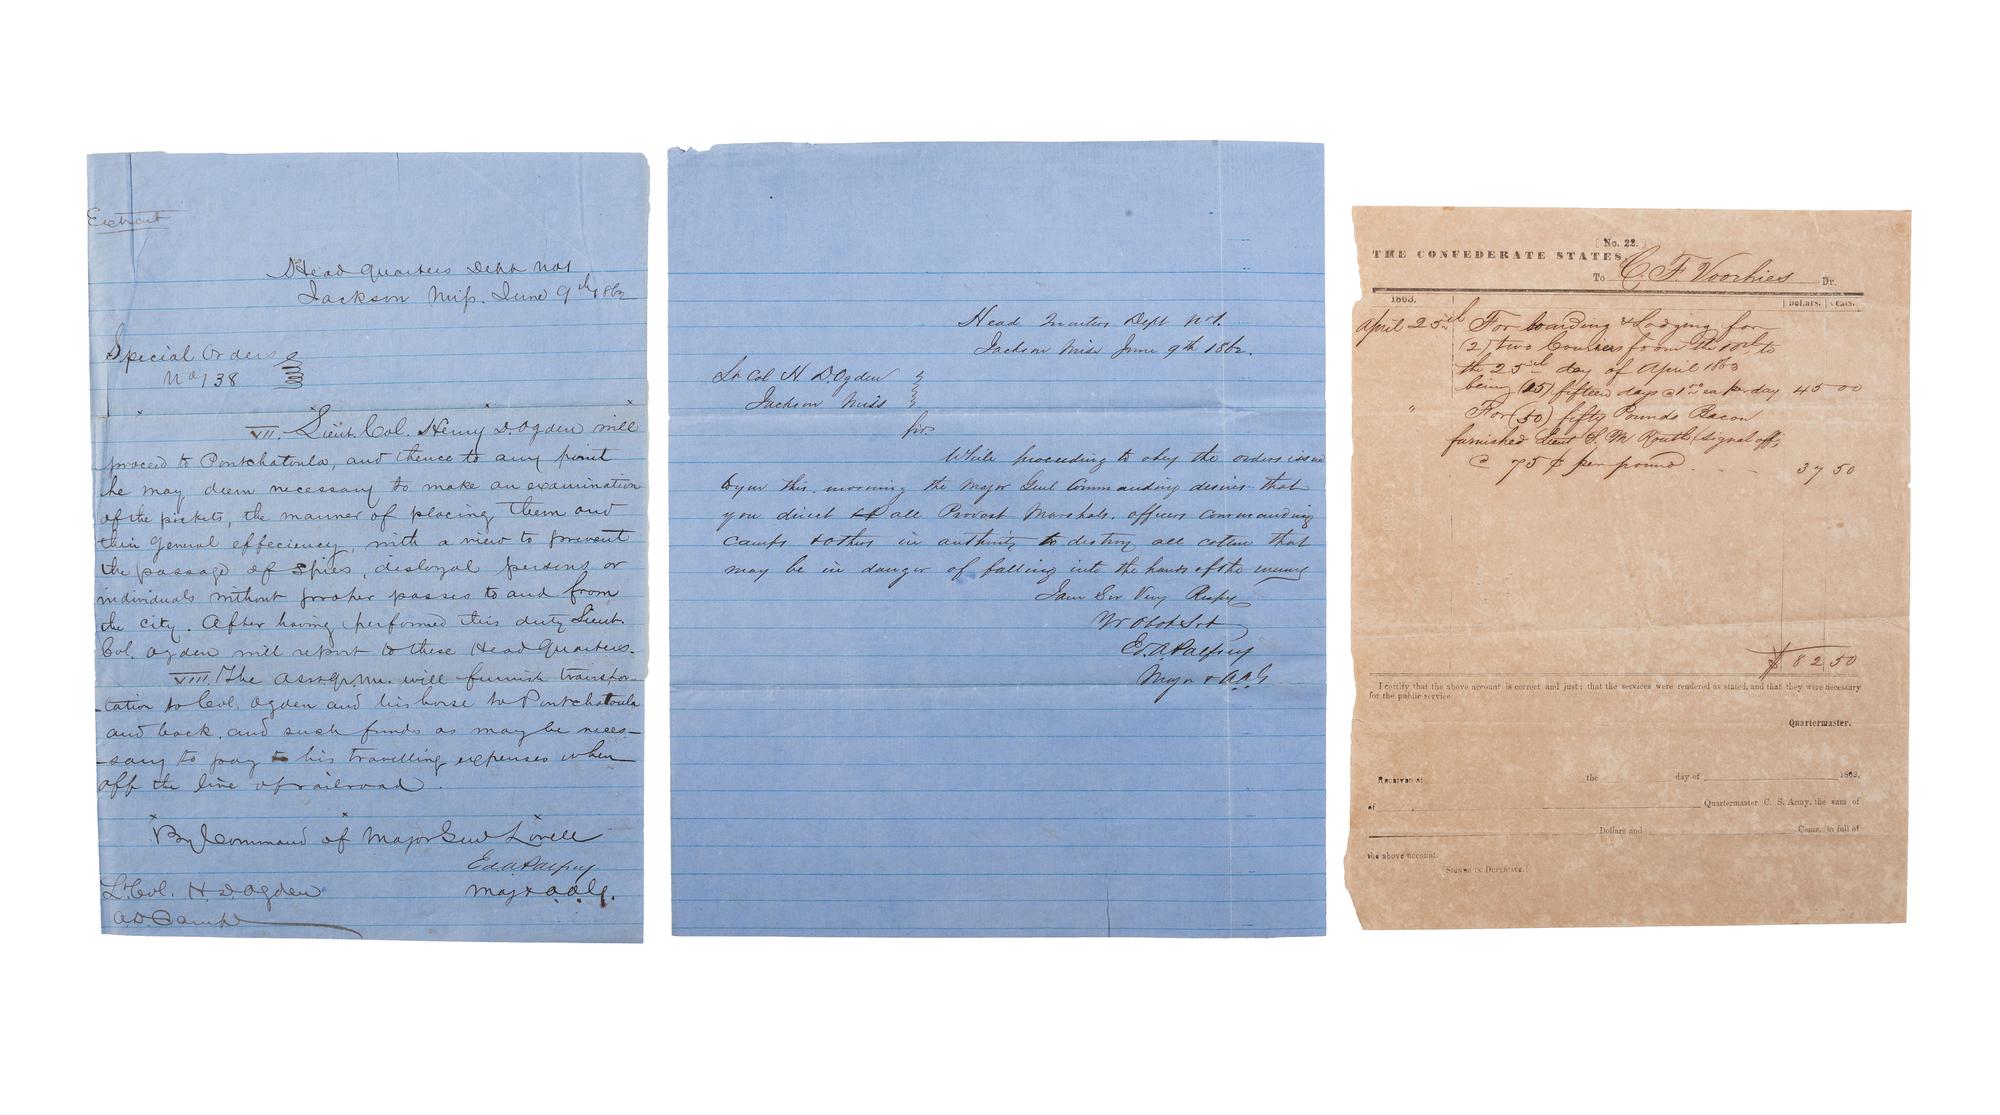 Extract
Head Quarters Dept No 1
Jackson Miss. June 9th 1862
Special Orders
No 138
VII. Lieut. Col. Henry D. Ogden will
proceed to Pontchatoula, and thence to any point
he may deem necessary to make an examination
of the pickets, the manner of placing them and
their general effeciency, with a view to prevent
the passage of spies, disloyal persons or
individuals without proper passes to and from
the city. After having performed this duty Lieut.
Col. Ogden will report to these Head Quarters.
VIII. The Asst Qr. Mr. will furnish transpor-
-tation to Col. Ogden and his horse to Pontchatoula
and back, and such funds as may be neces-
-sary to pay his travelling expenses when
off the line of railroad.
By Command of Major Genl Lovell
Ed. A Palfrey
Maj & A.A.G.
Lt. Col. H. D. Ogden
A.D. Camp
Head Quarters Dept No 1.
Jackson Miss June 9th 1862.
Lt Col H. D. Ogden
Jackson Miss
Sir
While proceeding to obey the orders issued
to you this morning the Major Genl Commanding desires that
you direct all Provost Marshals, officers commanding
camps & others in authority to destroy all cotton that
may be in danger of falling into the hands of the enemy
I am Sir Very Respy
Yr Obdt Svt
Ed. A Palfrey
Major & A.A.G
[No. 22.]
THE CONFEDERATE STATES,
To C. F. Voorhies Dr.
1863. Dollars. Cts.
April 25th For boarding & Lodging for
(2) two Couriers from the 10th to
the 25th day of April 1863
being (15) fifteen days @ 1.50 ea per day 45 00
" For (50) fifty Pounds Bacon
furnished Lieut S. M Routh (signal off)
@ 75 ¢ per pound. - - 37 50
$ 82 50
I certify that the above account is correct and just; that the services were rendered as stated, and that they were necessary
for the public service.
Quartermaster.
Received at the day of 1863,
of Quartermaster C. S. Army, the sum of
Dollars and Cents, in full of
the above account.
[Signed in Duplicate.]